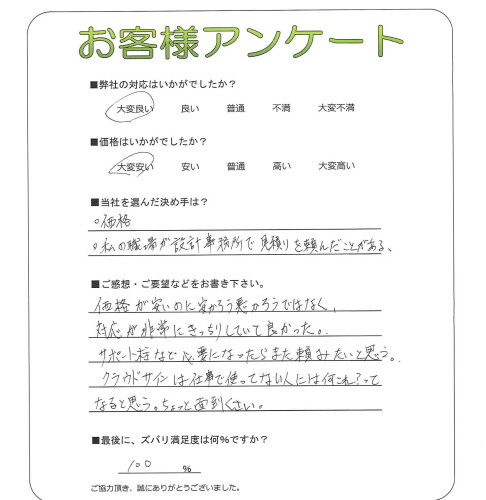 お客様アンケート
■弊社の対応はいかがでしたか？
大変良い 良い 普通 不満 大変不満
■価格はいかがでしたか？
大変安い 安い 普通 高い 大変高い
■当社を選んだ決め手は？
○価格
○私の職場が設計事務所で見積りを頼んだことがある、
■ご感想・ご要望などをお書き下さい。
価格が安いのに安かろう悪かろうではなく、
対応が非常にきっちりしていて良かった。
サポート柱など必要になったらまた頼みたいと思う。
クラウドサインは仕事で使ってない人には何これ?って
なると思う。ちょっと面倒くさい。
■最後に、ズバリ満足度は何％ですか？
100 %
ご協力頂き、誠にありがとうございました。